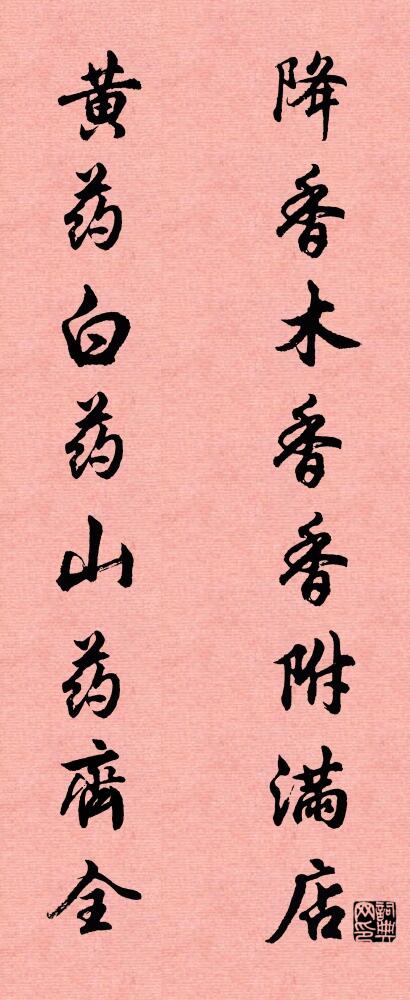 降香木香香附满店
黄药白药山药齊全
詞典网印